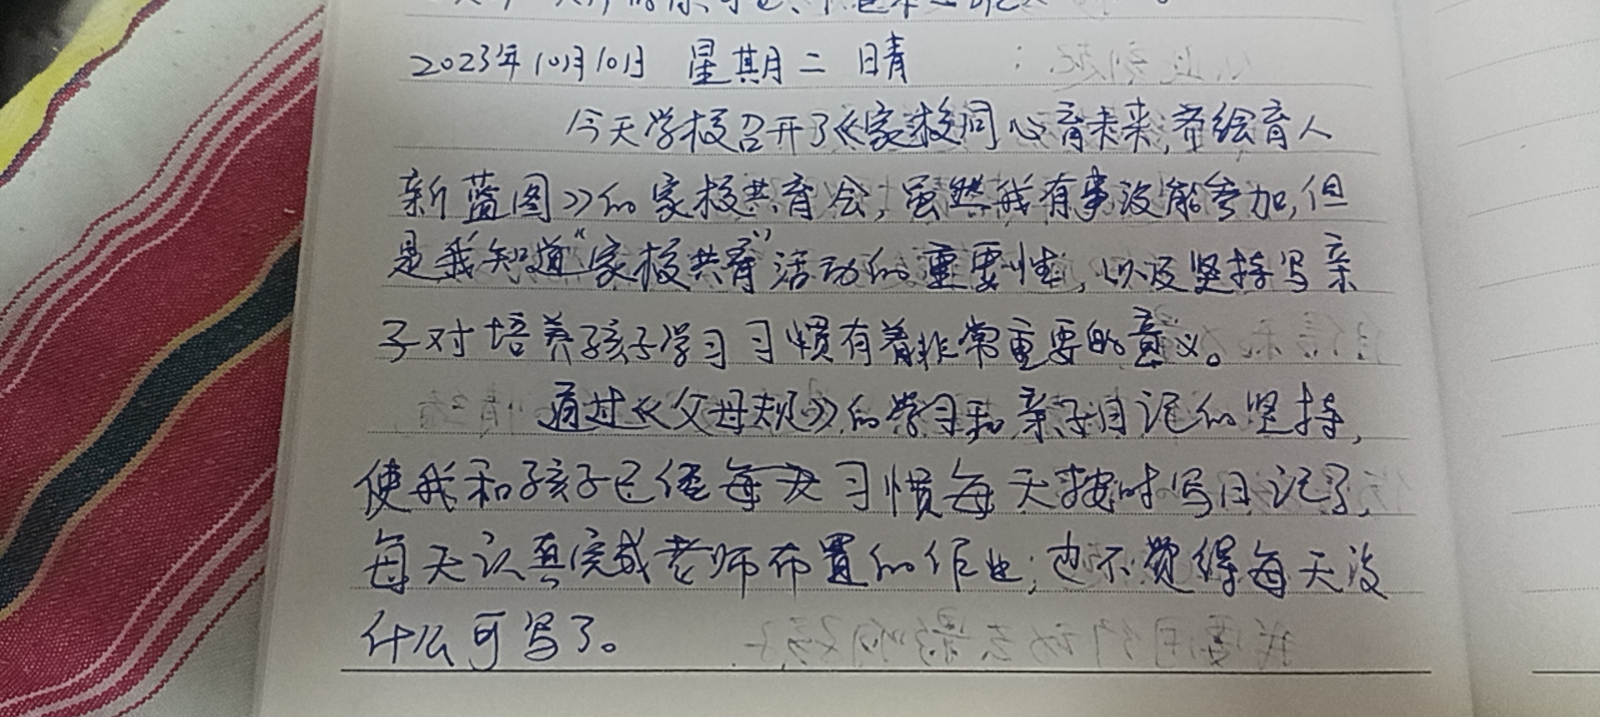 2023年10月10日 星期二 晴
今天学校召开了《家校同心育未来,希绘育人
新蓝图》的家校共育会,虽然我有事没能参加,但
是我知道"家校共育"活动的重要性,以及坚持写亲
子对培养孩子学习习惯有着非常重要的意义。
通过《父母规》的学习和亲子日记的坚持,
使我和孩子已经每天习惯每天按时写日记了,
每天认真完成老师布置的作业;也不觉得每天没
什么可写了。